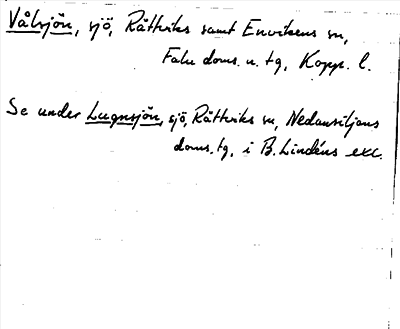 Vålsjön, sjö, Rättviks samt Envikens sn,
Falu doms. n. tg, Kopp. l.
Se under Lugnsjön, sjö, Rättviks sn, Nedansiljans
doms. tg, i B. Lindéns exc.